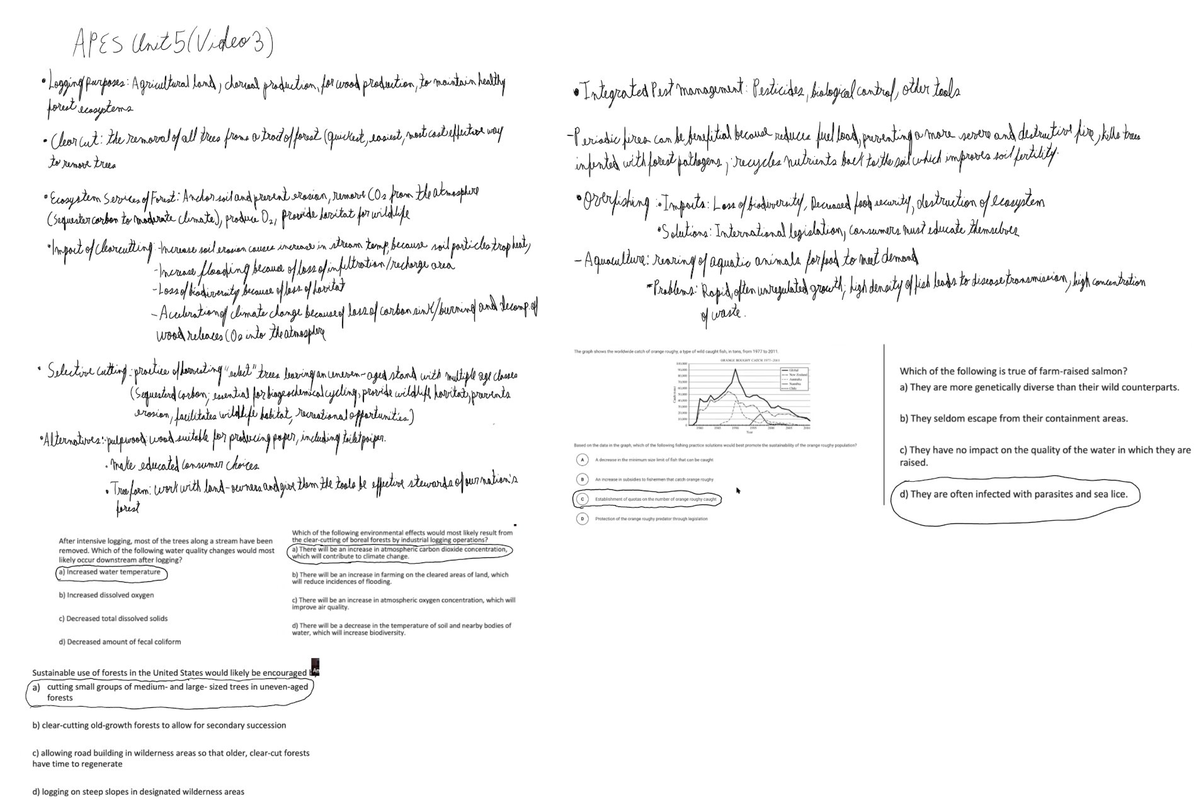 APES Unit 5 (Video 3)
• Logging purposes: Agricultural land, charcoal production, for wood production, to maintain healthy
forest ecosystems
• Clear cut: the removal of all trees from a tract of forest (quickest, easiest, most cost effective way
to remove trees
• Ecosystem Services of Forest: Anchor soil and prevent erosion, remove CO2 from the atmosphere
(sequester carbon to moderate climate), produce O2, provide habitat for wildlife
• Impact of clearcutting: -Increase soil erosion causes increase in stream temp, because soil particles trap heat,
- Increase flooding because of loss of infiltration/recharge area
- Loss of biodiversity because of loss of habitat
- Acceleration of climate change because of loss of carbon sink/burning and decomp of
wood releases CO2 into the atmosphere
• Selective cutting: practice of harvesting "select" trees leaving an uneven-aged stand with multiple age classes
(Sequestered carbon, essential for biogeochemical cycling, provide wildlife habitat, prevents
erosion, facilitates wildlife habitat, recreational opportunities)
• Alternatives: • pulpwood: wood suitable for producing paper, including toilet paper.
• Make educated consumer choices
• Tree farm: work with land-owners and give them the tools to be effective stewards of our nation's
forest
After intensive logging, most of the trees along a stream have been
removed. Which of the following water quality changes would most
likely occur downstream after logging?
a) Increased water temperature
b) Increased dissolved oxygen
c) Decreased total dissolved solids
d) Decreased amount of fecal coliform
Which of the following environmental effects would most likely result from
the clear-cutting of boreal forests by industrial logging operations?
a) There will be an increase in atmospheric carbon dioxide concentration,
which will contribute to climate change.
b) There will be an increase in farming on the cleared areas of land, which
will reduce incidences of flooding.
c) There will be an increase in atmospheric oxygen concentration, which will
improve air quality.
d) There will be a decrease in the temperature of soil and nearby bodies of
water, which will increase biodiversity.
Sustainable use of forests in the United States would likely be encouraged
a) cutting small groups of medium- and large- sized trees in uneven-aged
forests
b) clear-cutting old-growth forests to allow for secondary succession
c) allowing road building in wilderness areas so that older, clear-cut forests
have time to regenerate
d) logging on steep slopes in designated wilderness areas
• Integrated Pest management: Pesticides, biological control, other tools
- Periodic fires can be benefitial because reduces fuel load, preventing a more severe and destructive fire, kills trees
infested with forest pathogens; recycles nutrients back to the soil which improves soil fertility.
• Overfishing: • Impacts: Loss of biodiversity, Decreased food security, destruction of ecosystem
• Solutions: International legislation, consumers must educate themselves
- Aquaculture: rearing of aquatic animals for food to meet demand
- Problems: Rapid, often unregulated growth; high density of fish leads to disease transmission, high concentration
of waste.
The graph shows the worldwide catch of orange roughy, a type of wild caught fish, in tons, from 1977 to 2011.
ORANGE ROUGHY CATCH 1977-2011
Year
Based on the data in the graph, which of the following fishing practice solutions would best promote the sustainability of the orange roughy population?
A A decrease in the minimum size limit of fish that can be caught
B An increase in subsidies to fishermen that catch orange roughy
C Establishment of quotas on the number of orange roughy caught
D Protection of the orange roughy predator through legislation
Which of the following is true of farm-raised salmon?
a) They are more genetically diverse than their wild counterparts.
b) They seldom escape from their containment areas.
c) They have no impact on the quality of the water in which they are
raised.
d) They are often infected with parasites and sea lice.